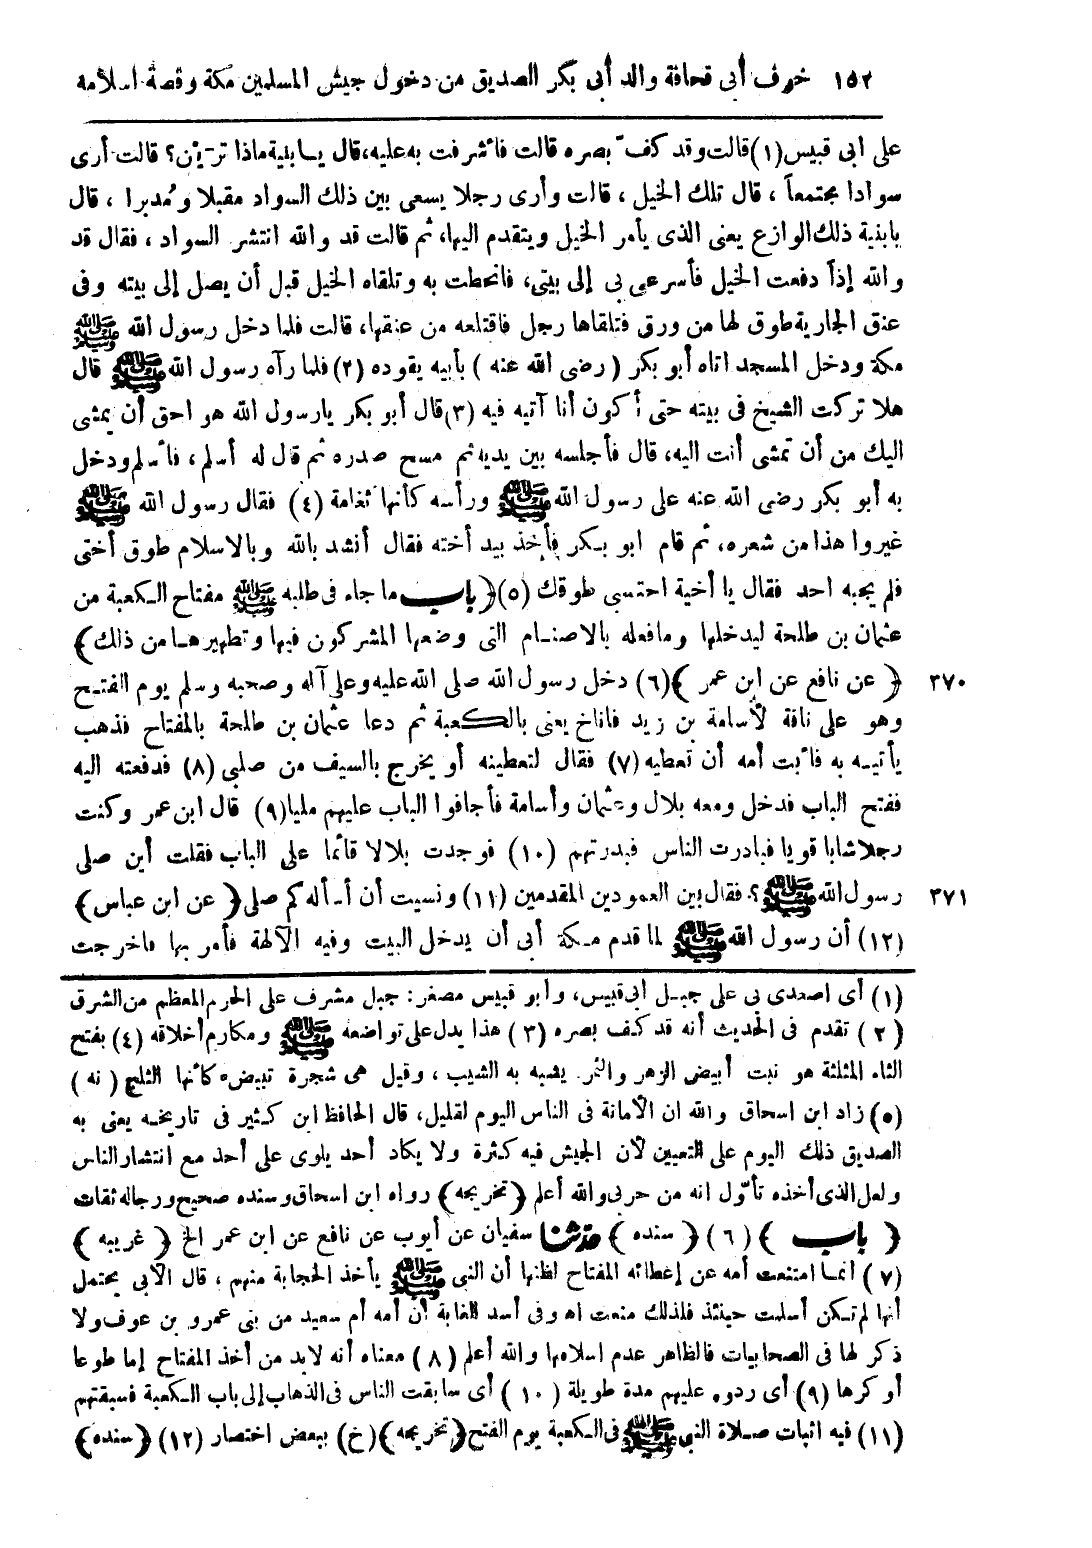 ١٥٢ خوف أبى قحافة والد أبى بكر الصديق من دخول جيش المسلمين مكة وقصة اسلامه
على ابى قبيس(١)قالت وقد كف بصره قالت فأشرفت به عليه،قال يابنية ماذا ترين؟ قالت أرى
سوادا مجتمعاً ، قال تلك الخيل ، قالت وأرى رجلا يسعى بين ذلك السواد مقبلا ومُدبرا ، قال
يابنية ذلك الوازع يعنى الذى يأمر الخيل ويتقدم اليها، ثم قالت قد والله انتشر السواد ، فقال قد
والله إذاً دفعت الخيل فأسرعى بى إلى بيتى، فانحطت به وتلقاه الخيل قبل أن يصل إلى بيته وفى
عنق الجارية طوق لها من ورق فتلقاها رجل فاقتلعه من عنقها، قالت فلما دخل رسول الله ﷺ
مكة ودخل المسجد اتاه أبو بكر ( رضى الله عنه ) بأبيه يقوده (٢) فلما رآه رسول الله ﷺ قال
هلا تركت الشيخ فى بيته حتى أكون أنا آتيه فيه (٣)قال أبو بكر يارسول الله هو احق أن يمشى
اليك من أن تمشى أنت اليه، قال فأجلسه بين يديه ثم مسح صدره ثم قال له أسلم ، فأسلم ودخل
به أبو بكر رضى الله عنه على رسول الله ﷺ ورأسه كأنها ثغامة (٤) فقال رسول الله ﷺ
غيروا هذا من شعره، ثم قام ابو بكر فأخذ بيد أخته فقال أنشد بالله وبالاسلام طوق أختى
فلم يجبه احد فقال يا أخية احتسبى طوقك (٥) ﴿باب ما جاء فى طلبه ﷺ مفتاح الكعبة من
عثمان بن طلحة ليدخلها ومافعله بالاصنام التى وضعها المشركون فيها وتطهيرها من ذلك﴾
٣٧٠ ﴿ عن نافع عن ابن عمر ﴾(٦) دخل رسول الله صلى الله عليه وعلى آله وصحبه وسلم يوم الفتح
وهو على ناقة لأسامة بن زيد فاناخ يعنى بالكعبة ثم دعا عثمان بن طلحة بالمفتاح فذهب
يأتيه به فأبت أمه أن تعطيه (٧) فقال لتعطينه أو يخرج بالسيف من صلبى (٨) فدفعته اليه
ففتح الباب فدخل ومعه بلال وعثمان وأسامة فأجافوا الباب عليهم مليا(٩) قال ابن عمر وكنت
رجلا شابا قويا فبادرت الناس فبدرتهم (١٠) فوجدت بلالا قائما على الباب فقلت أين صلى
٣٧١ رسول الله ﷺ ؟ فقال بين العمودين المقدمين (١١) ونسيت أن أسأله كم صلى ﴿ عن ابن عباس﴾
(١٢) أن رسول الله ﷺ لما قدم مكة أبى أن يدخل البيت وفيه الآلهة فأمر بها فاخرجت
(١) أى اصعدى بى على جبل ابى قبيس، وابو قبيس مصغر: جبل مشرف على الحرم المعظم من الشرق
(٢) تقدم فى الحديث أنه قد كف بصره (٣) هذا يدل على تواضعه ﷺ ومكارم أخلاقه (٤) بفتح
الثاء المثلثة هو نبت أبيض الزهر والثمر يشبه به الشيب ، وقيل هى شجرة تبيض كأنها الثلج ( نه )
(٥) زاد ابن اسحاق والله ان الأمانة فى الناس اليوم لقليل، قال الحافظ ابن كثير فى تاريخه يعنى به
الصديق ذلك اليوم على التعيين لأن الجيش فيه كثرة ولا يكاد أحد يلوى على أحد مع انتشار الناس
ولعل الذى أخذه تأوّل انه من حربى والله أعلم ﴿تخريجه﴾ رواه ابن اسحاق وسنده صحيح ورجاله ثقات
﴿ باب ﴾ (٦) ﴿ سنده ﴾ حدثنا سفيان عن أيوب عن نافع عن ابن عمر الخ ﴿ غريبه ﴾
(٧) انما امتنعت أمه عن إعطائه المفتاح لظنها أن النبى ﷺ يأخذ الحجابة منهم ، قال الأبى يحتمل
أنها لم تكن أسلمت حينئذ فلذلك منعت اه وفى أسد الغابة أن أمه أم سعيد من بنى عمرو بن عوف ولا
ذكر لها فى الصحابيات فالظاهر عدم اسلامها والله أعلم (٨) معناه أنه لابد من أخذ المفتاح إما طوعا
أو كرها (٩) أى ردوه عليهم مدة طويلة (١٠) أى سابقت الناس فى الذهاب إلى باب الكعبة فسبقتهم
(١١) فيه اثبات صلاة النبى ﷺ فى الكعبة يوم الفتح ﴿تخريجه﴾ (خ) ببعض اختصار (١٢) ﴿سنده﴾